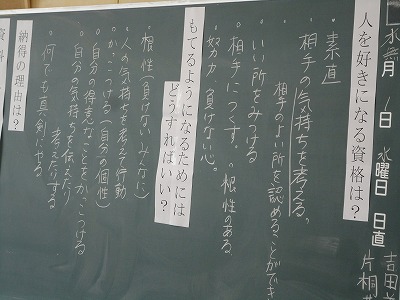 水無月 1日 水曜日 日直
吉田
片桐
人を好きになる資格は？
・素直
・相手の気持ちを考える。
相手のよい所を認めることができ
・いい所をみつける
・相手につくす。・根性のある
・努力 負けない心。
もてるようになるためには
どうすればいい？
・根性(負けない みんなに)
・人の気持ちを考えて行動
・かっこつける(自分の個性)
・自分の得意なことをかっこつける
・自分の気持ちを伝えたり
考えたりする
・何でも真剣にやる
納得の理由は？
資料